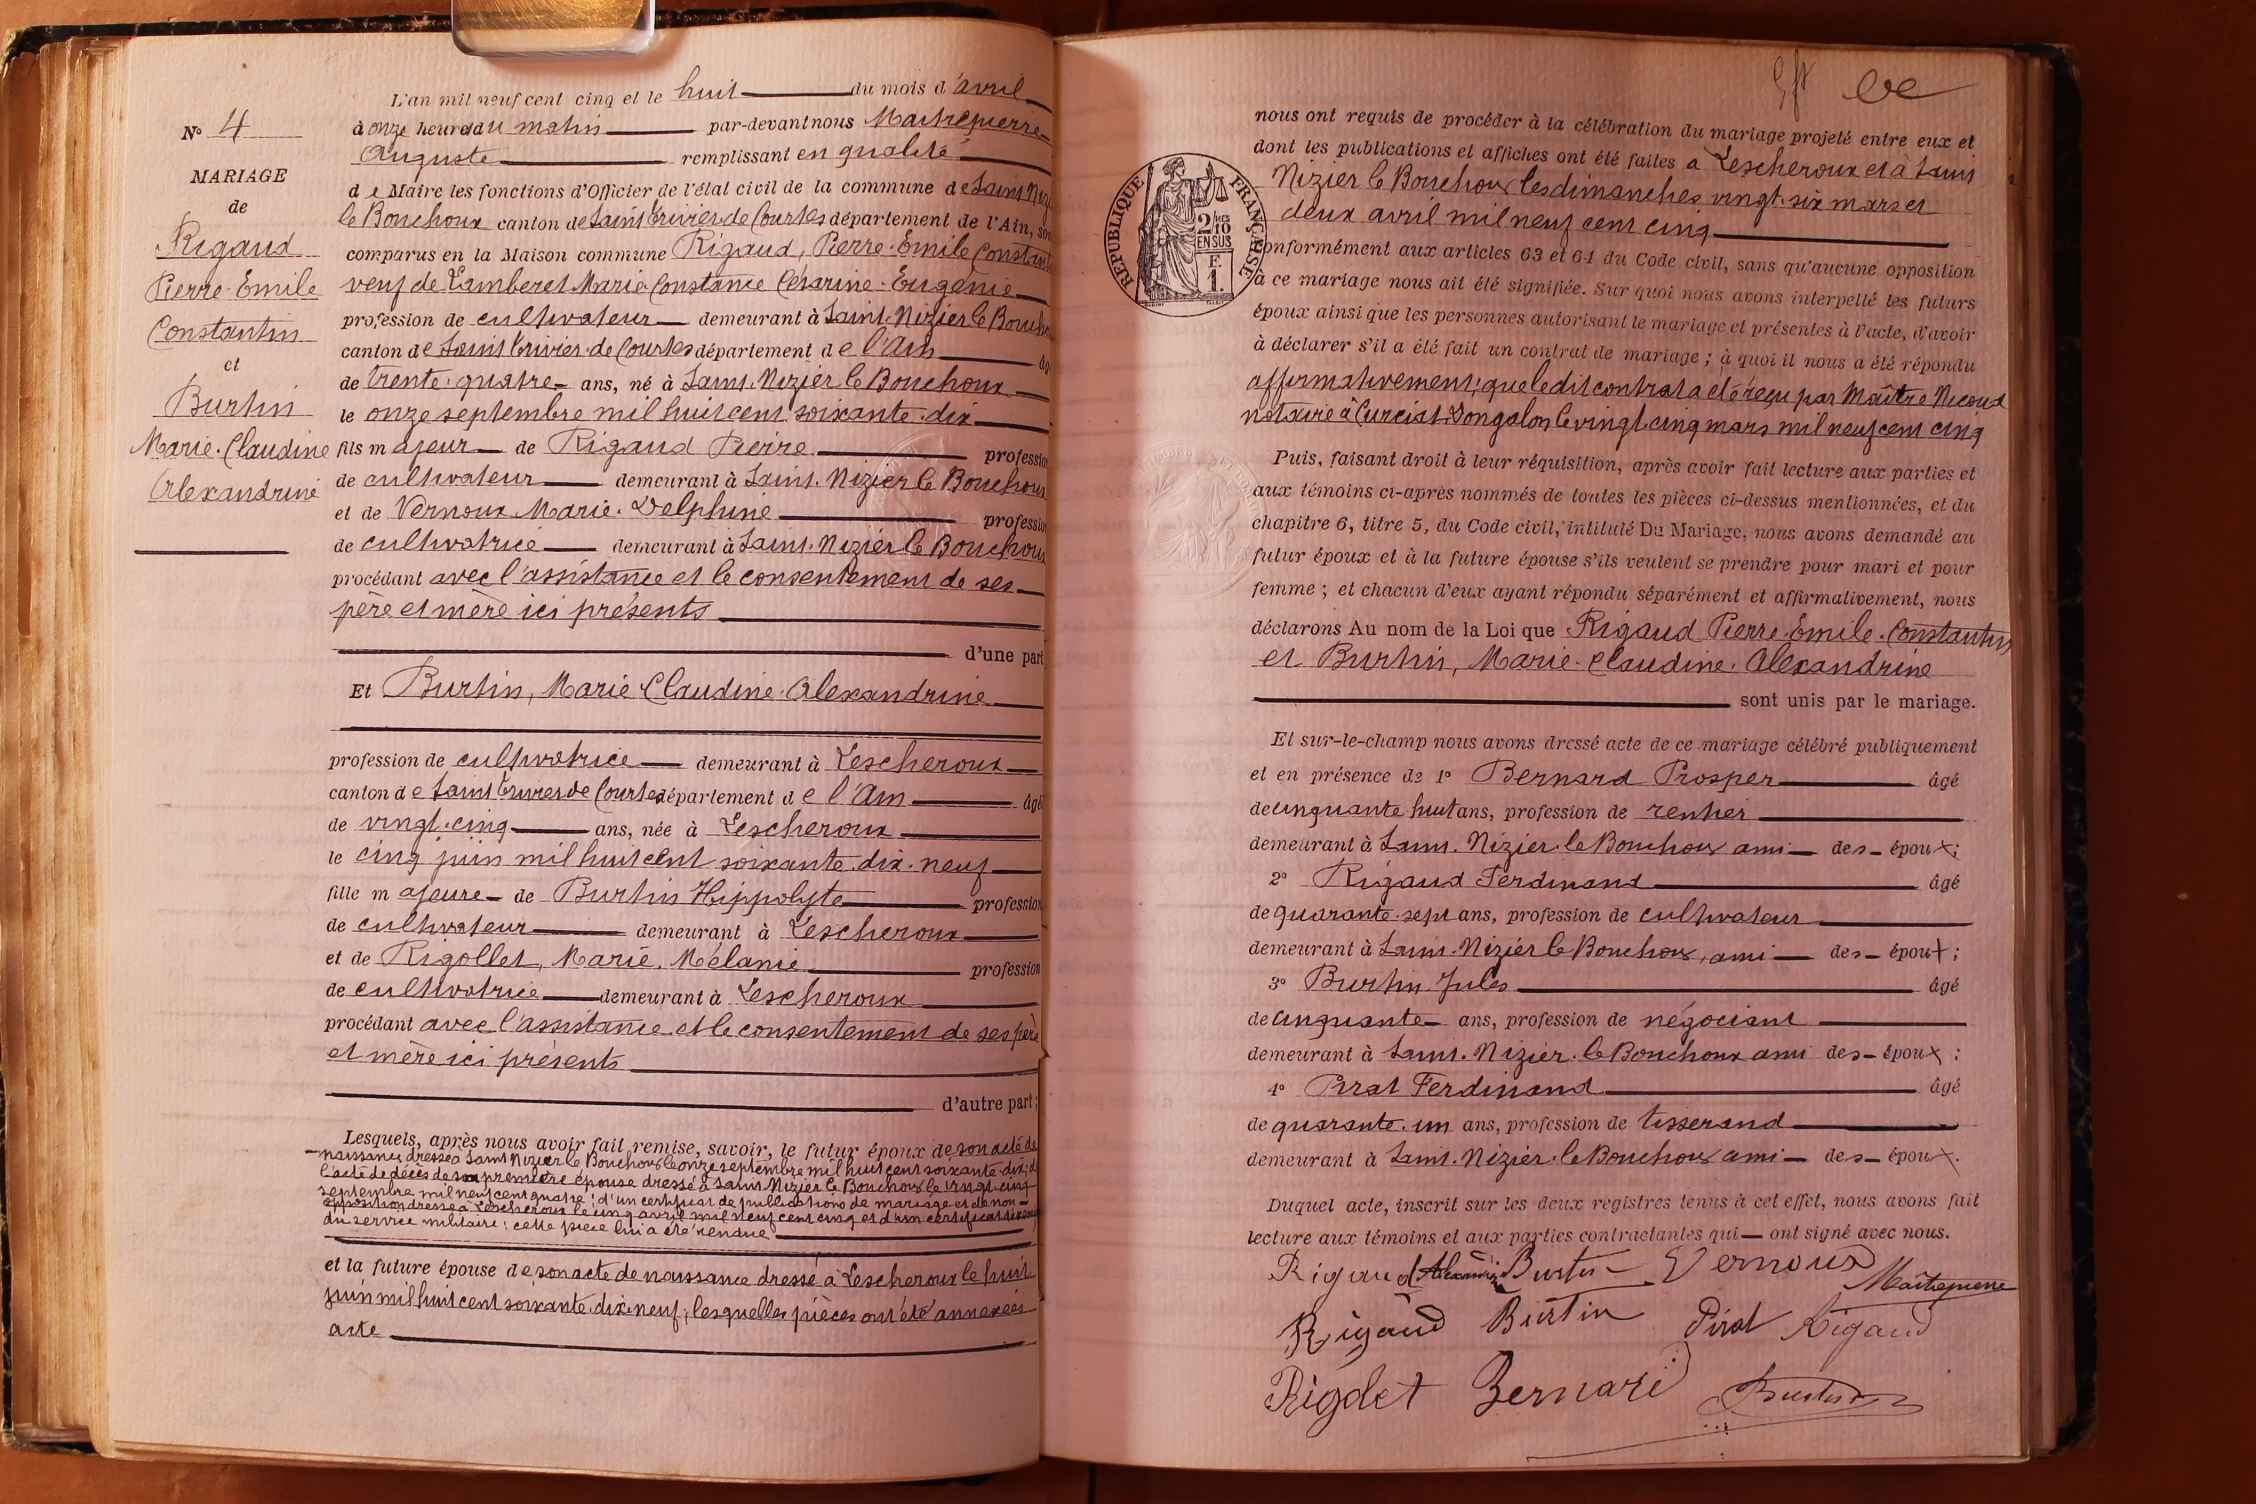 N° 4
MARIAGE
de
Rigaud
Pierre-Emile
Constantin
et
Burtin
Marie-Claudine
Alexandrine
L'an mil neuf cent cinq et le huit du mois d'avril
à onze heures du matin par-devant nous Maitrepierre
Auguste remplissant en qualité
de Maire les fonctions d'Officier de l'état civil de la commune de Saint Nizier
le Bouchoux canton de Saint Trivier de Courtes département de l'Ain, son
comparus en la Maison commune Rigaud, Pierre-Emile Constant
veuf de Lamberet Marie Constance Césarine-Eugénie
profession de cultivateur demeurant à Saint-Nizier le Bouchou
canton de Saint Trivier-de Courtes département de l'Ain âg
de trente-quatre ans, né à Saint-Nizier le Bouchoux
le onze septembre mil huit cent soixante-dix
fils majeur de Rigaud Pierre profession
de cultivateur demeurant à Saint-Nizier le Bouchoux
et de Vernoux Marie-Delphine profession
de cultivatrice demeurant à Saint-Nizier le Bouchoux
procédant avec l'assistance et le consentement de ses
père et mère ici présents
d'une part
Et Burtin, Marie-Claudine-Alexandrine
profession de cultivatrice demeurant à Lescheroux
canton de Saint Trivier de Courtes département de l'Ain âgé
de vingt-cinq ans, née à Lescheroux
le cinq juin mil huit cent soixante-dix-neuf
fille majeure de Burtin Hippolyte profession
de cultivateur demeurant à Lescheroux
et de Rigollet, Marie, Mélanie profession
de cultivatrice demeurant à Lescheroux
procédant avec l'assistance et le consentement de ses père
et mère ici présents
d'autre part;
Lesquels, après nous avoir fait remise, savoir, le futur époux de son acte de
naissance dressé à Saint Nizier le Bouchoux le onze septembre mil huit cent soixante-dix; de
l'acte de décès de sa première épouse dressé à Saint Nizier le Bouchoux le vingt-cinq
septembre mil neuf cent quatre; d'un certificat de publications de mariage et de non-
opposition dressé à Lescheroux le cinq avril mil neuf cent cinq et d'un certificat
du service militaire; cette pièce lui a été rendue
et la future épouse de son acte de naissance dressé à Lescheroux le huit
juin mil huit cent soixante-dix-neuf; lesquelles pièces ont été annexées
acte
nous ont requis de procéder à la célébration du mariage projeté entre eux et
dont les publications et affiches ont été faites à Lescheroux et à Saint
Nizier le Bouchoux les dimanches vingt-six mars et
deux avril mil neuf cent cinq
REPUBLIQUE FRANÇAISE
2/10 EN SUS
F. 1.
conformément aux articles 63 et 64 du Code civil, sans qu'aucune opposition
à ce mariage nous ait été signifiée. Sur quoi nous avons interpellé les futurs
époux ainsi que les personnes autorisant le mariage et présentes à l'acte, d'avoir
à déclarer s'il a été fait un contrat de mariage; à quoi il nous a été répondu
affirmativement; que ledit contrat a été reçu par Maître Nicoud
notaire à Curciat-Dongalon le vingt-cinq mars mil neuf cent cinq
Puis, faisant droit à leur réquisition, après avoir fait lecture aux parties et
aux témoins ci-après nommés de toutes les pièces ci-dessus mentionnées, et du
chapitre 6, titre 5, du Code civil, intitulé Du Mariage, nous avons demandé au
futur époux et à la future épouse s'ils veulent se prendre pour mari et pour
femme; et chacun d'eux ayant répondu séparément et affirmativement, nous
déclarons Au nom de la Loi que Rigaud Pierre-Emile-Constantin
et Burtin, Marie-Claudine-Alexandrine
sont unis par le mariage.
Et sur-le-champ nous avons dressé acte de ce mariage célébré publiquement
et en présence de 1° Bernard Prosper âgé
de cinquante huit ans, profession de rentier
demeurant à Saint-Nizier le Bouchoux ami des époux;
2° Rigaud Ferdinand âgé
de quarante-sept ans, profession de cultivateur
demeurant à Saint-Nizier le Bouchoux, ami des époux;
3° Burtin Jules âgé
de cinquante ans, profession de négociant
demeurant à Saint-Nizier-le Bouchoux ami des époux;
4° Pirat Ferdinand âgé
de quarante-un ans, profession de tisserand
demeurant à Saint-Nizier-le Bouchoux ami des époux.
Duquel acte, inscrit sur les deux registres tenus à cet effet, nous avons fait
lecture aux témoins et aux parties contractantes qui ont signé avec nous.
Rigaud Alexandrine Burtin Vernoux
Maitrepierre
Rigaud Burtin Pirat Rigaud
Rigolet Bernard Burtin